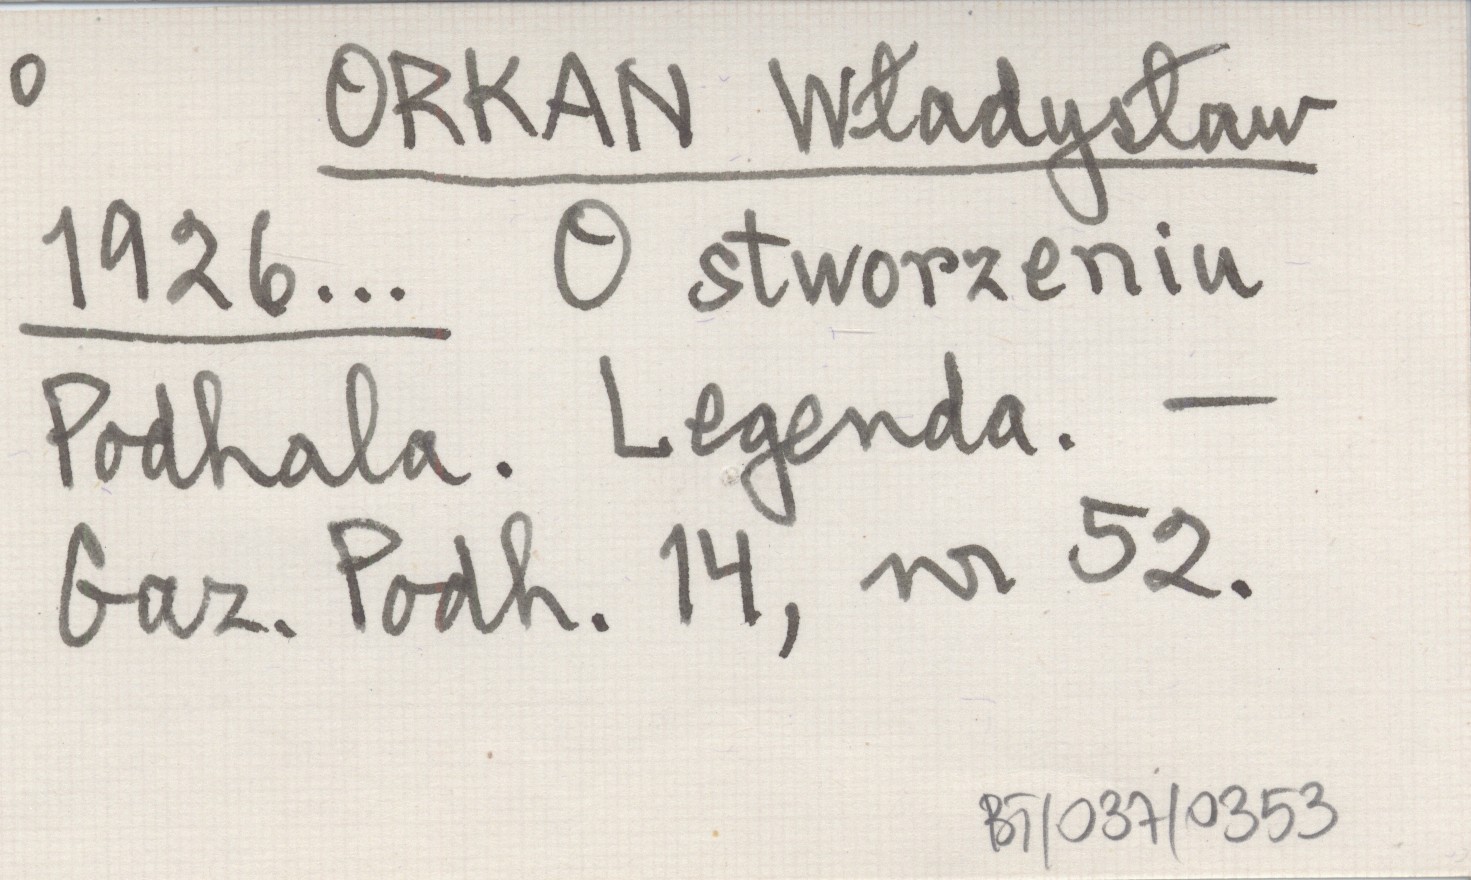 o ORKAN Władysław
1926... O stworzeniu
Podhala. Legenda. —
Gaz. Podh. 14, nr 52.
BT/037/0353